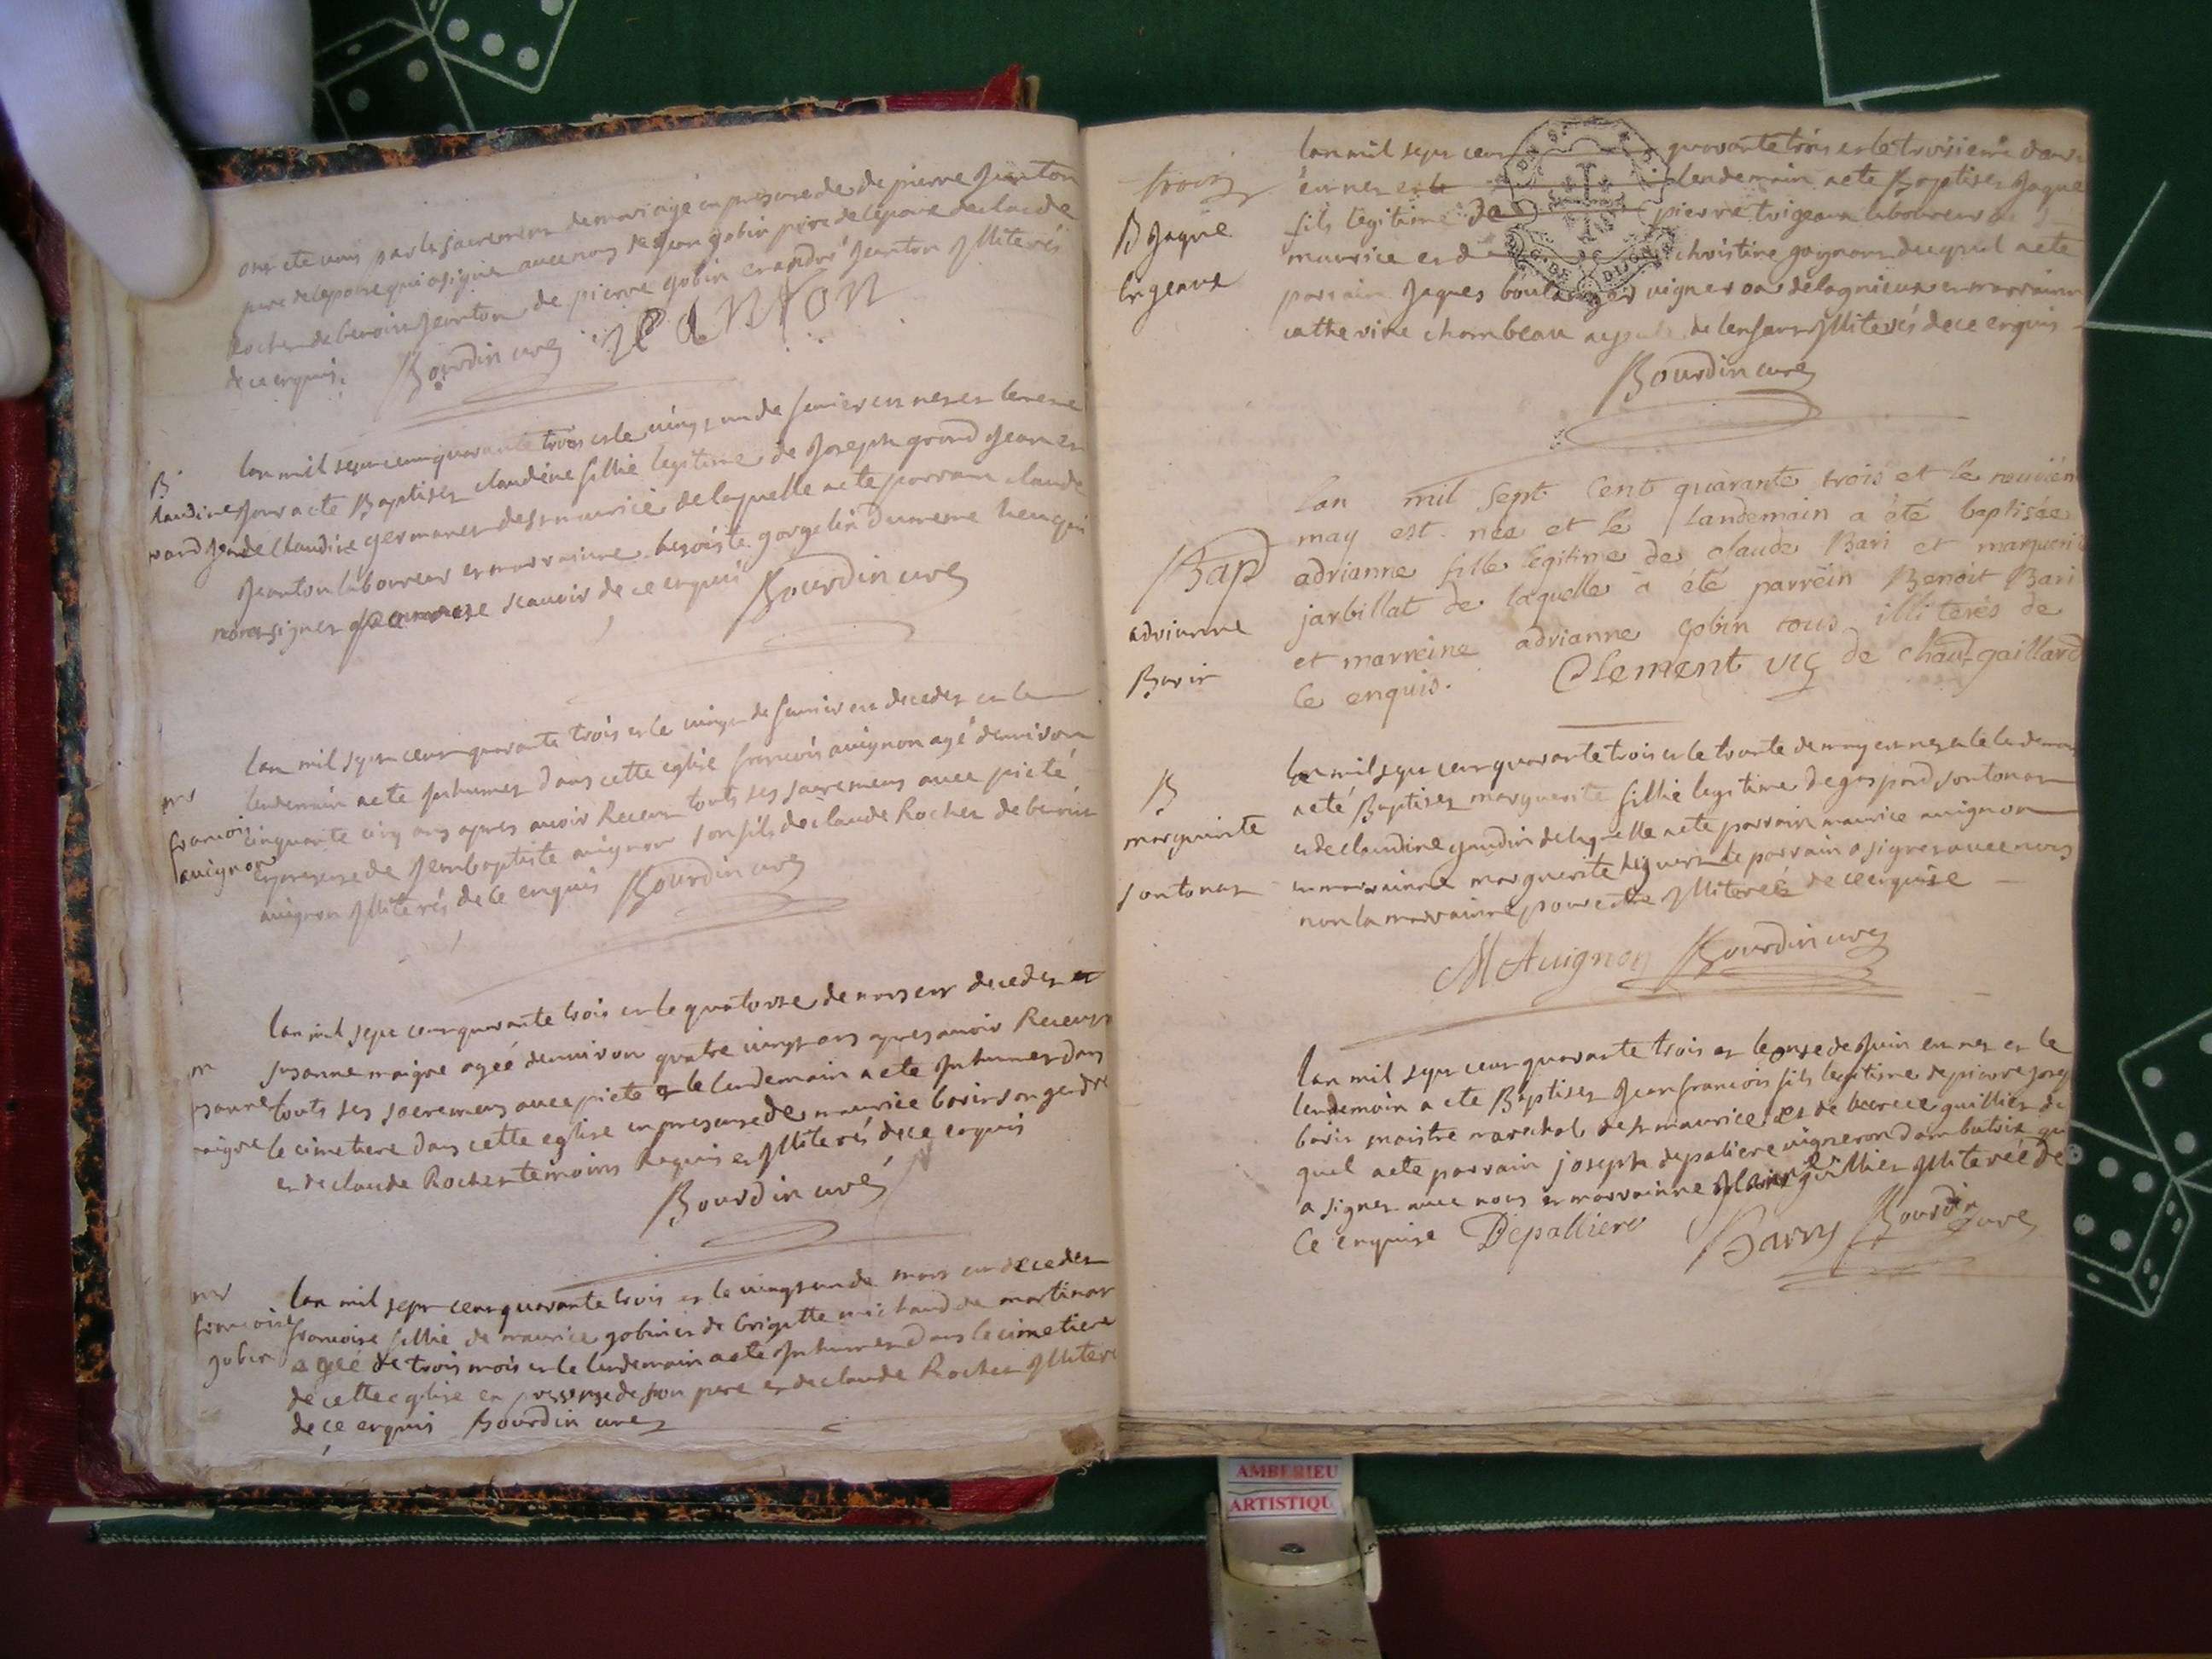 ont été unis par le sacrement de mariage en presence de pierre jeanton
pere de lepouse qui a signé avec nous de jean gobin pere de lepoux de claude
Rocher de benoit jeanton de pierre gobin et andré jeanton illiterés
de ce enquis. Bourdin curé JEANTON
B
claudine
grand jean
lan mil sept cent quarante trois et le vingt un de fevrier est née et le meme
jour a eté Baptisez claudine fillie legitime de joseph grand jean et
de claudine germanet de st maurice de laquelle a eté parrain claude
jeanton laboureur et marrainne benoiste gorgelin du meme lieu qui
nont signer pour ne scavoir de ce enquis Bourdin curé
mt
francois
avignon
lan mil sept cent quarante trois et le vingt de fevrier est decedez et le
lendemain a eté inhumez dans cette eglise francois avignon agé denviron
cinquante cinq ans apres avoir Receu touts ses sacremens avec pieté
en presence de jean baptiste avignon son fils de claude Rocher de benoit
avignon illiterés de ce enquis Bourdin curé
m
susanne
maigre
lan mil sept cent quarante trois et le quatorze de mars est decedez et
susanne maigre ageé denviron quatre vingt ans apres avoir Receus
touts ses sacremens avec pieté et le lendemain a eté inhumez dans
le cimetiere dans cette eglise en presence de maurice bovir son gendre
et de claude Rocher temoins Requis et illiterés de ce enquis
Bourdin curé
mt
francoise
gobin
lan mil sept cent quarante trois et le vingt un de mars est decedez
francoise fillie de maurice gobin et de brigitte michaud de martinas
ageé de trois mois et le lendemain a eté inhumez dans le cimetiere
de cette eglise en presence de son pere et de claude Rocher illiterés
de ce enquis Bourdin curé
B jaque
trigeaux
lan mil sept cent quarante trois et le troisieme davril
est nez et le lendemain a eté Baptisez jaque
fils legitime de pierre trigeaux laboureur de st
maurice et de christine gaynon duquel a eté
parrain jaques boulanger vigneron de lagnieux et marrainne
catherine chambeau de lenfant illiterés de ce enquis
Bourdin curé
Bap
adrianne
Bovir
Lan mil Sept Cent quarante trois et le neuvième
may est née et le landemain a été baptisée
adrianne fille legitime de claude Bari et marguerite
jarbillat de laquelle a été parrein Benoit Bari
et marreine adrianne gobin tous illiterés de
ce enquis. Clement vic de chau-gaillard
B
marguirite
sontonas
lan mil sept cent quarante trois et le trante de may est nez et le lendemain
a eté Baptisez marguerite fillie legitime de gaspard sontonas
et de claudine gaudin de laquelle a eté parrain maurice avignon
et marrainne marguerite le parrain a signer avec nous
non la marrainne pour etre illitereé de ce enquise
M Avignon Bourdin curé
lan mil sept cent quarante trois et le onze de juin est nez et le
lendemain a eté Baptisez jean francois fils legitime de pierre joseph
bovir maistre marechal de st maurice et de lucrece guillier du
quel a eté parrain joseph depaliere vigneron dambutrix qui
a signer avec nous et marrainne guillier illitereé de
ce enquise Depalliere Barry Bourdin curé
AMBERIEU
ARTISTIQU